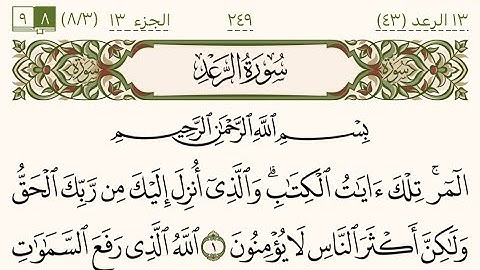 ١٣ الرعد (٤٣) ٢٤٩ الجزء ١٣ (٨/٣) ٨ ٩
سُورَةُ الرَّعْدِ
بِسْمِ اللَّهِ الرَّحْمَٰنِ الرَّحِيمِ
الٓمٓر ۚ تِلْكَ ءَايَٰتُ الْكِتَٰبِ ۗ وَالَّذِىٓ أُنزِلَ إِلَيْكَ مِن رَّبِّكَ الْحَقُّ
وَلَٰكِنَّ أَكْثَرَ النَّاسِ لَا يُؤْمِنُونَ ١ اللَّهُ الَّذِى رَفَعَ السَّمَٰوَٰتِ